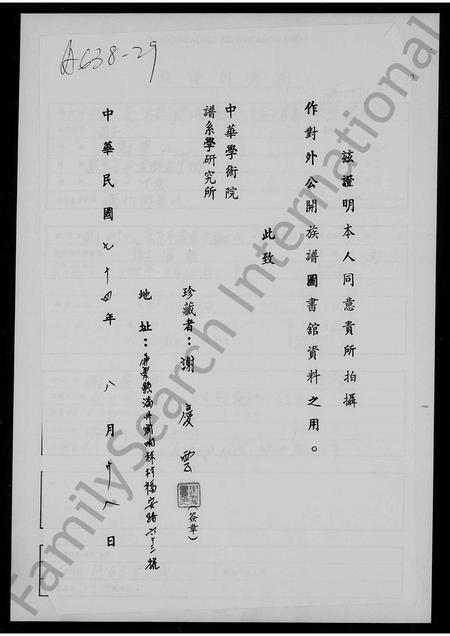 A638-29
茲證明本人同意貴所拍攝
作對外公開族譜圖書館資料之用。
此致
中華學術院
譜系學研究所
珍藏者：謝慶雲
(簽章)
地址：屏東縣滿州鄉 村福安路 號
中華民國七十四年八月十八日
FamilySearch International